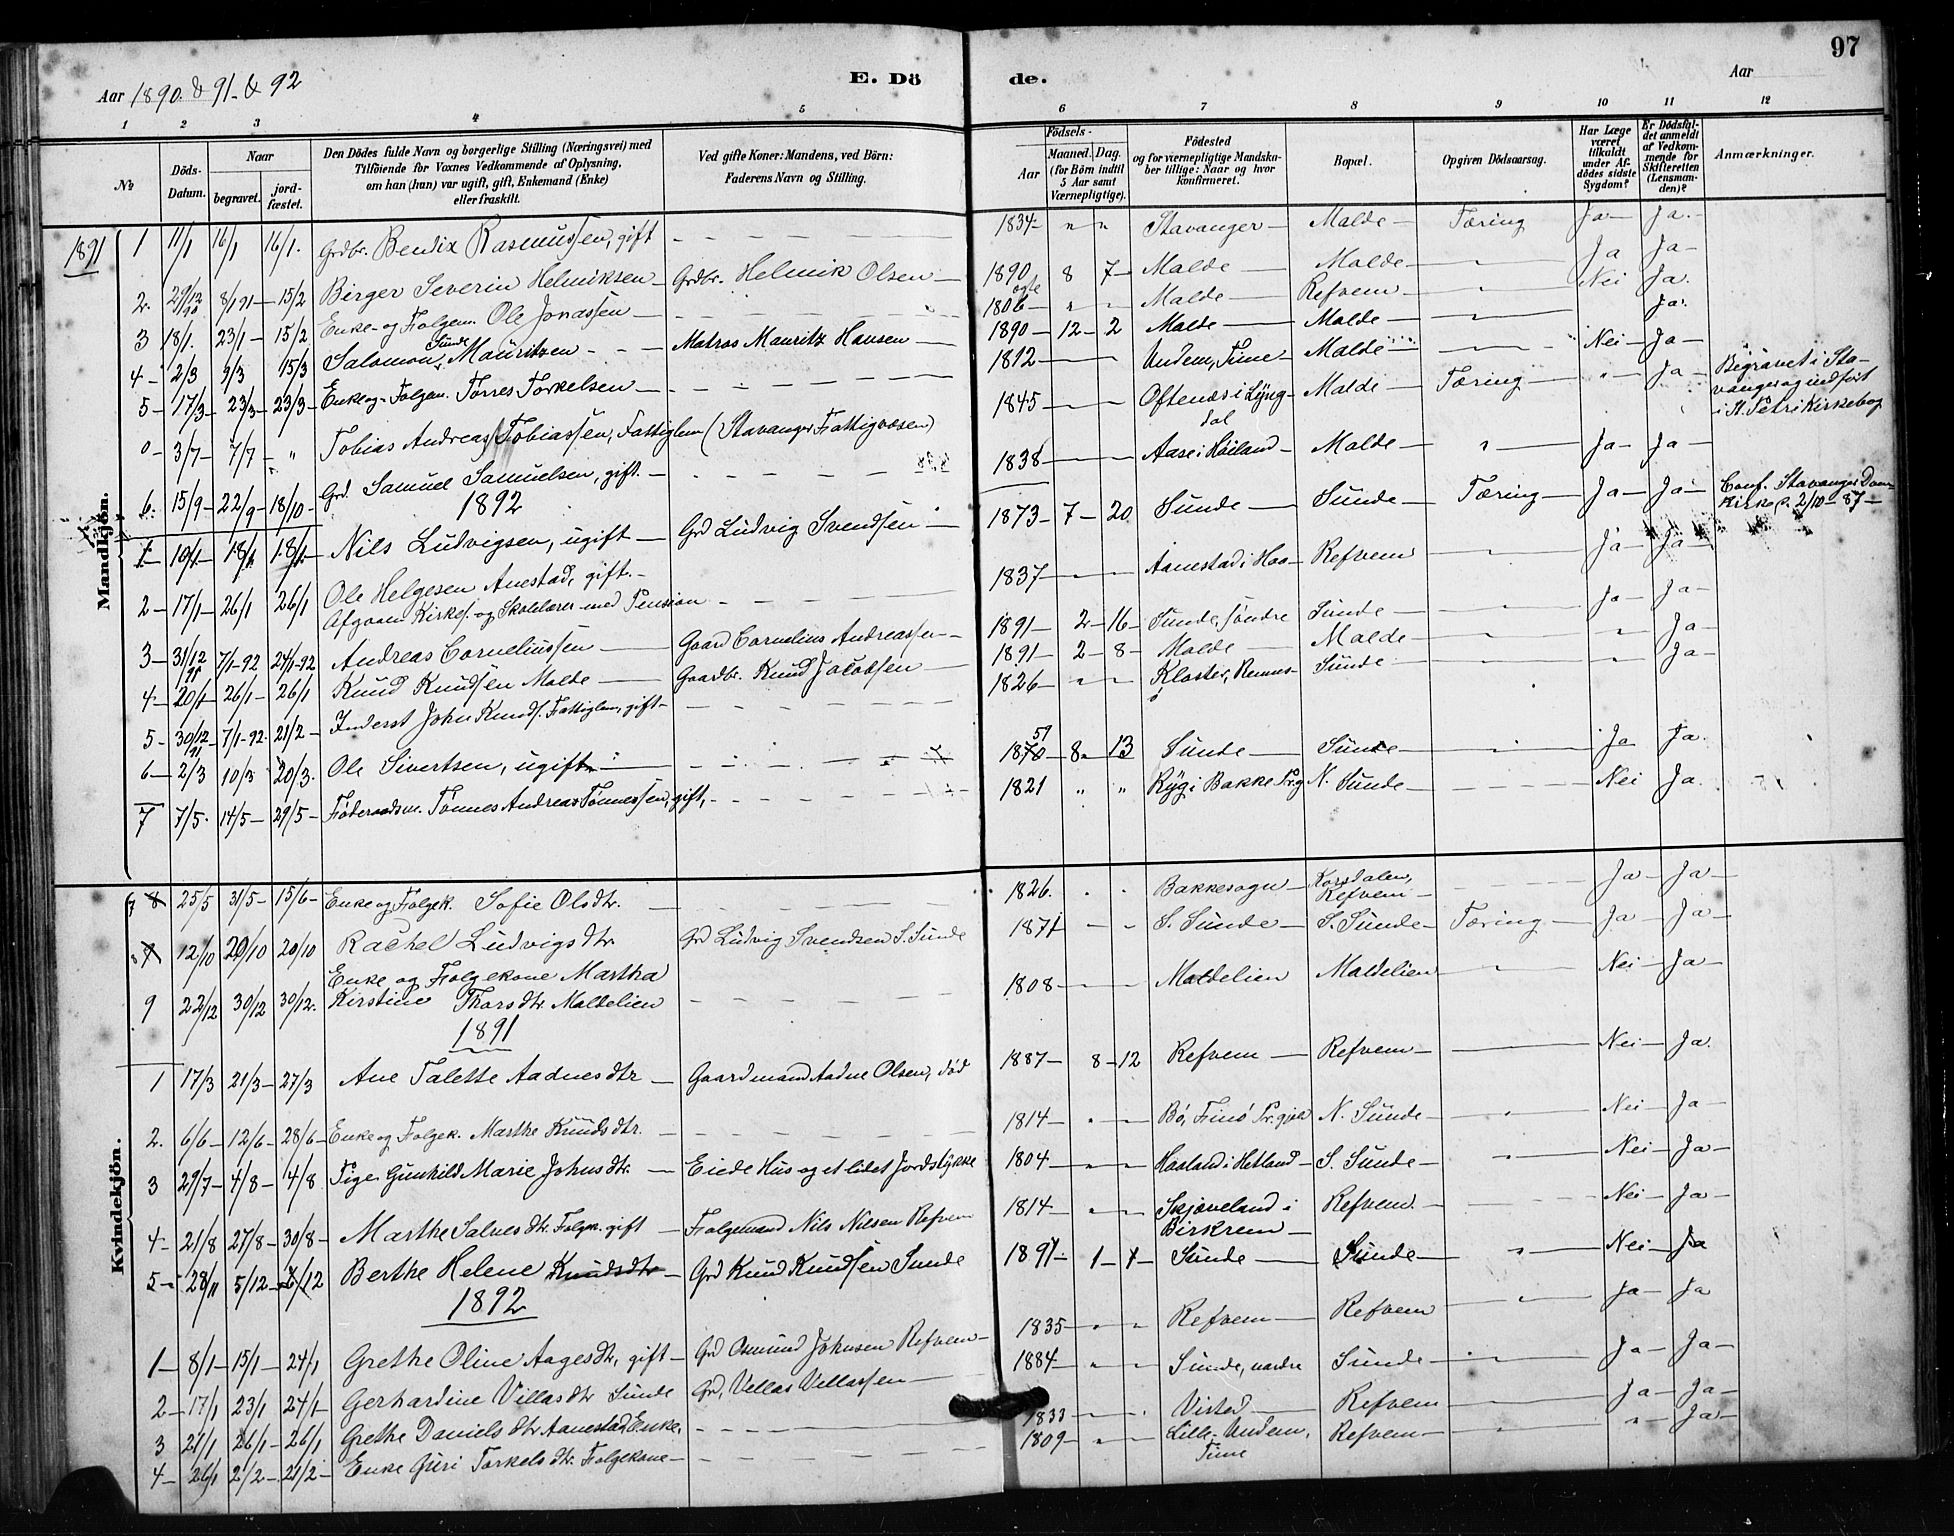 97
Aar 1890 & 91 & 92
E. Dö de.
Aar
1 2 3 4 5 6 7 8 9 10 11 12
No
Döds-Datum.
Naar
begravet.
jord-fæstet.
Den Dödes fulde Navn og borgerlige Stilling (Næringsvei) med
Tilföiende for Voxnes Vedkommende af Oplysning,
om han (hun) var ugift, gift, Enkemand (Enke)
eller fraskilt.
Ved gifte Koner: Mandens, ved Börn:
Faderens Navn og Stilling.
Födsels-
Aar
Maaned. Dag.
(for Börn indtil
5 Aar samt
Værnepligtige).
Födested
og for værnepligtige Mandskaber tillige: Naar og hvor
konfirmeret.
Bopæl.
Opgiven Dödsaarsag.
Har Læge
været
tilkaldt
under Afdödes sidste
Sygdom?
Er Dödsfaldet anmeldt
af Vedkommende for
Skifteretten
(Lensmanden)?
Anmærkninger.
Mandkjön.
1891
1 11/1 16/1 16/1. Grdbr. Bendix Rasmussen, gift 1834 " " Stavanger Malde Tæring Ja Ja
2. 29/12 90 8/1 91 15/2 Birger Severin Helmiksen Grdbr. Helmik Olsen 1890 8 7 Malde Malde " Ja Ja
3 18/1. 23/1 15/2 Enke- og Folgem. Ole Jonassen 1806 " " Malde Refvem " Nei Ja.
4 2/3 9/3 15/3 Salomon Sunde Mauritzen Matros Mauritz Hansen 1890 12 2 Malde Malde " Ja.
5 17/3 23/3 23/3 Enke og Folgem. Torres Torkelsen 1812 Undem, Time Malde Nei Ja
0 3/7 7/7 " Tobias Andreas Tobiassen, Fattiglem (Stavanger Fattigvæsen) 1845 Oftenæs i Lyngdal Malde Tæring " Ja Begravet i Stavanger og indført i St. Petri Kirkebog
6. 15/9 22/9 18/10 Grd. Samuel Samuelsen, gift. 1838 Aase i Høiland Malde " Ja Ja
1892
1 10/1 18/1 18/1 Nils Ludvigsen, ugift Grd Ludvig Svendsen 1873 7 20 Sunde Sunde Tæring Ja Ja Conf. Stavanger Dom Kirke d. 2/10 87
2 17/1 26/1 26/1 Ole Helgesen Anestad, gift.
Afgaaen Kirkes. og Skolelærer med Pension 1837 Aanestad i Haa Refvem " Ja Ja
3 31/12 91 7/1-92 24/1-92 Andreas Corneliussen Gaard Cornelius Andreassen 1891 2 16 Sunde, søndre Sunde Ja Ja
4 20/1 26/1 26/1 Knud Knudsen Malde Gaardbr. Knud Jacobsen 1891 2 8 Malde Malde " " Ja
5 30/12 91 7/1-92. 21/2 Inderst John Knuds. Fattiglem, gift 1826 " " Kloster, Rennesö Sunde " Ja
6 2/3 10/3 20/3. Ole Sivertsen, ugift 1870 51 8 13 Sunde Sunde " Ja Ja
7 7/5. 14/5 29/5 Føderaadsm. Tønnes Andreas Tønnessen, gift, 1821 " " Ryg i Bakke Prg N. Sunde Nei Ja.
Kvindekjön.
7 8 25/5 31/5 15/6 Enke og Folgek. Sofie Olsdtr. 1826. " " Bakkesogn Korsdalen, Refvem Ja Ja
8 12/10 20/10 20/10 Rachel Ludvigsdtr. Grd Ludvig Svendsen S. Sunde 1871 " S. Sunde S. Sunde Tæring Ja Ja
9 22/12 30/12 30/12. Enke og Folgekone Martha
Kirstine Thorsdtr Maldelien 1808 Maldelien Maldelien " Nei Ja
1891
1 17/3 21/3 27/3 Ane Talette Aadnesdtr Gaardmand Aadne Olsen, død 1887 8 12 Refvem Refvem Nei Ja.
2. 6/6 12/6 28/6 Enke og Folgek. Marthe Knudsdtr. 1814 Bö, Finö Pr.gjeld N. Sunde " Nei Ja
3 29/7 4/8 4/8 Pige Gunhild Marie Johnsdtr. Eiede Hus og et lidet Jordstykke 1804 " " Haaland i Hetland S. Sunde " Nei Ja
4 21/8 27/8 30/8 Marthe Salvesdtr. Folgek. gift Folgemand Nils Nilsen Refvem 1814 " " Skjæveland i Birkrem Refvem. Nei Ja
5 28/11 5/12 6/12 Berthe Helene Knudsdtr Grd Knud Knudsen Sunde 1891 1 1 Sunde Sunde " Nei Ja
1892
1 8/1 15/1 24/1 Grethe Oline Aagesdtr, gift Grd Osmund Johnsen Refvem 1835 " " Refvem Refvem " Ja Ja
2 17/1 23/1 24/1 Gerhardine Villasdtr Sunde Grd, Vellas Vellassen 1884 " " Sunde, nordre Sunde " Ja Ja
3 21/1 26/1 26/1 Grethe Danielsdtr Aanestad, Enke, 1833 Visted Refvem Ja Ja
4 26/1 2/2 21/2 Enke Guri Torkelsdtr. Folgekone 1809 " Lille Undem, Time Refvem " " Ja